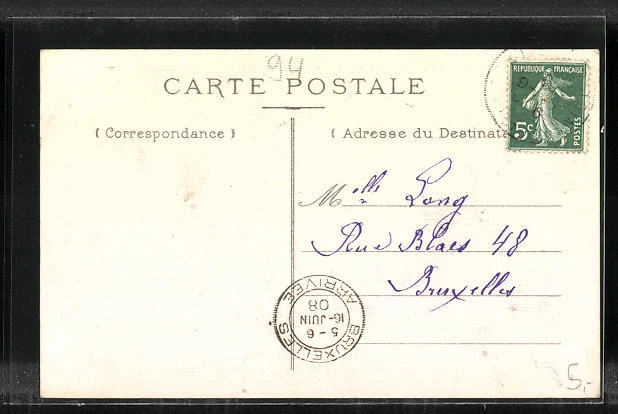 94
CARTE POSTALE
( Correspondance )
( Adresse du Destinata
REPUBLIQUE FRANÇAISE
5c
POSTES
Melle Long
Rue Blaes 48
Bruxelles
BRUXELLES
5 - 6
10-JUIN
08
ARRIVEE
5,-